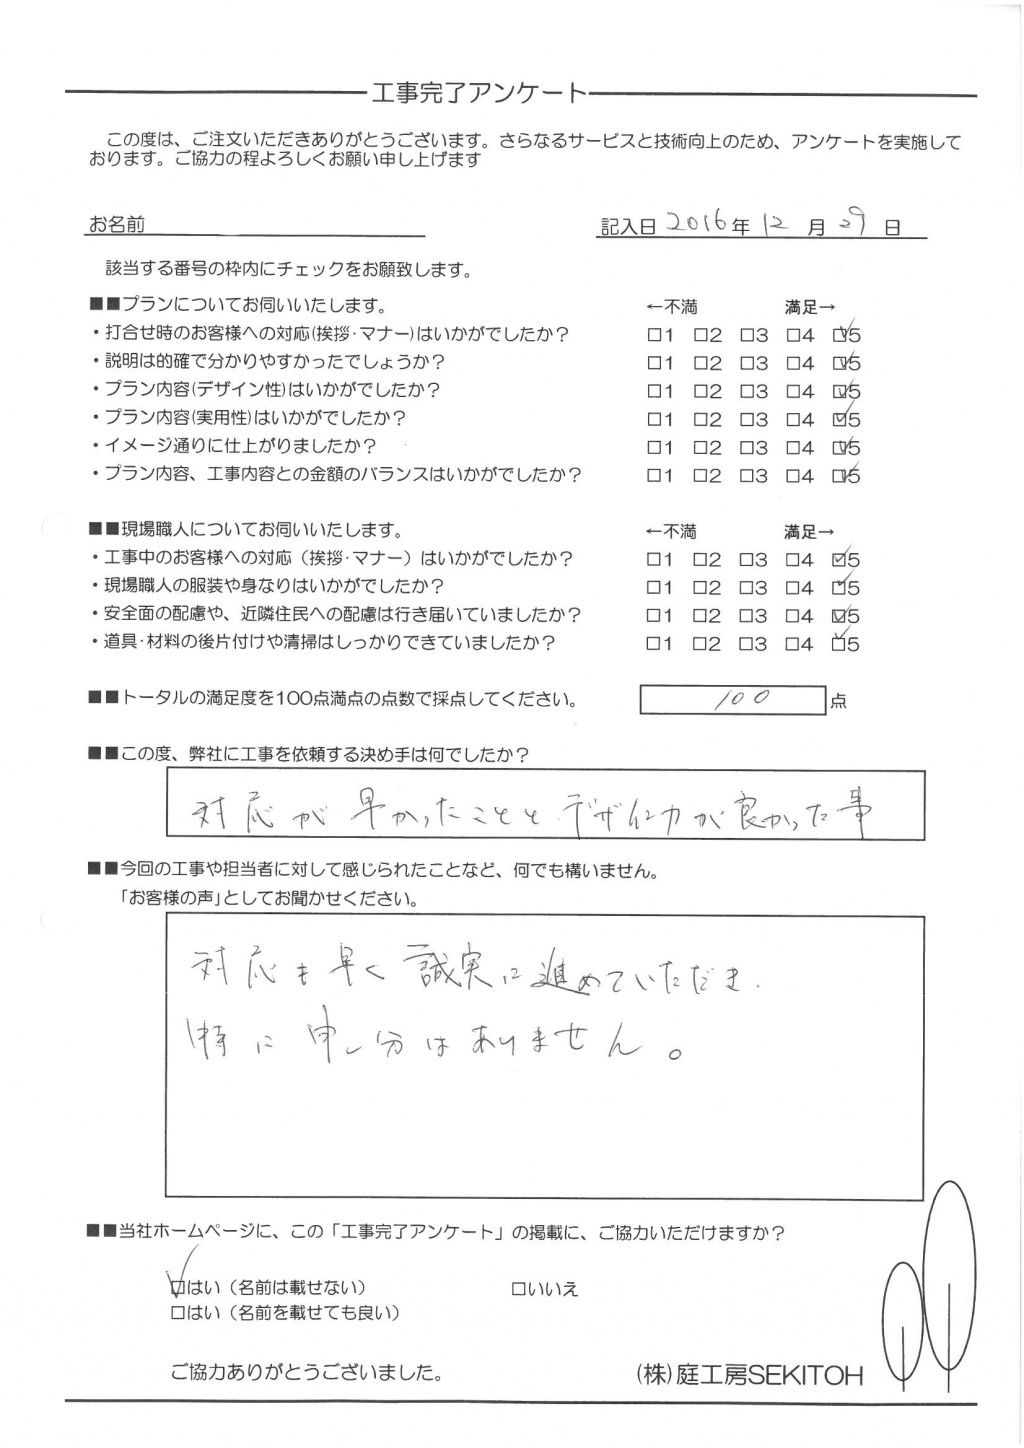 工事完了アンケート
この度は、ご注文いただきありがとうございます。さらなるサービスと技術向上のため、アンケートを実施して
おります。ご協力の程よろしくお願い申し上げます
お名前 記入日 2016年 12 月 29 日
該当する番号の枠内にチェックをお願致します。
■■プランについてお伺いいたします。 ←不満 満足→
・打合せ時のお客様への対応(挨拶・マナー)はいかがでしたか? □1 □2 □3 □4 ☑5
・説明は的確で分かりやすかったでしょうか? □1 □2 □3 □4 ☑5
・プラン内容(デザイン性)はいかがでしたか? □1 □2 □3 □4 ☑5
・プラン内容(実用性)はいかがでしたか? □1 □2 □3 □4 ☑5
・イメージ通りに仕上がりましたか? □1 □2 □3 □4 ☑5
・プラン内容、工事内容との金額のバランスはいかがでしたか? □1 □2 □3 □4 ☑5
■■現場職人についてお伺いいたします。 ←不満 満足→
・工事中のお客様への対応（挨拶・マナー）はいかがでしたか? □1 □2 □3 □4 ☑5
・現場職人の服装や身なりはいかがでしたか? □1 □2 □3 □4 ☑5
・安全面の配慮や、近隣住民への配慮は行き届いていましたか? □1 □2 □3 □4 ☑5
・道具・材料の後片付けや清掃はしっかりできていましたか? □1 □2 □3 □4 ☑5
■■トータルの満足度を100点満点の点数で採点してください。 100 点
■■この度、弊社に工事を依頼する決め手は何でしたか?
対応が早かったことと、デザイン力が良かった事
■■今回の工事や担当者に対して感じられたことなど、何でも構いません。
「お客様の声」としてお聞かせください。
対応も早く誠実に進めていただき、
特に申し分はありません。
■■当社ホームページに、この「工事完了アンケート」の掲載に、ご協力いただけますか?
☑はい（名前は載せない） □いいえ
□はい（名前を載せても良い）
ご協力ありがとうございました。 (株)庭工房SEKITOH